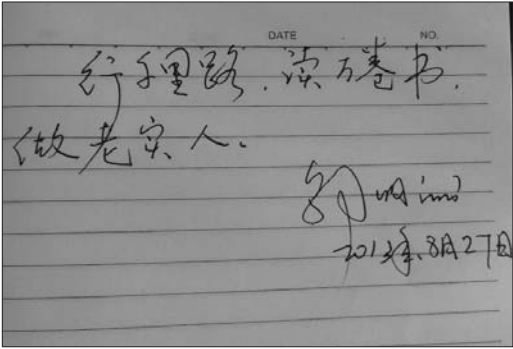 DATE NO.
行千里路.读万卷书.
做老实人.
2012年.8月27日